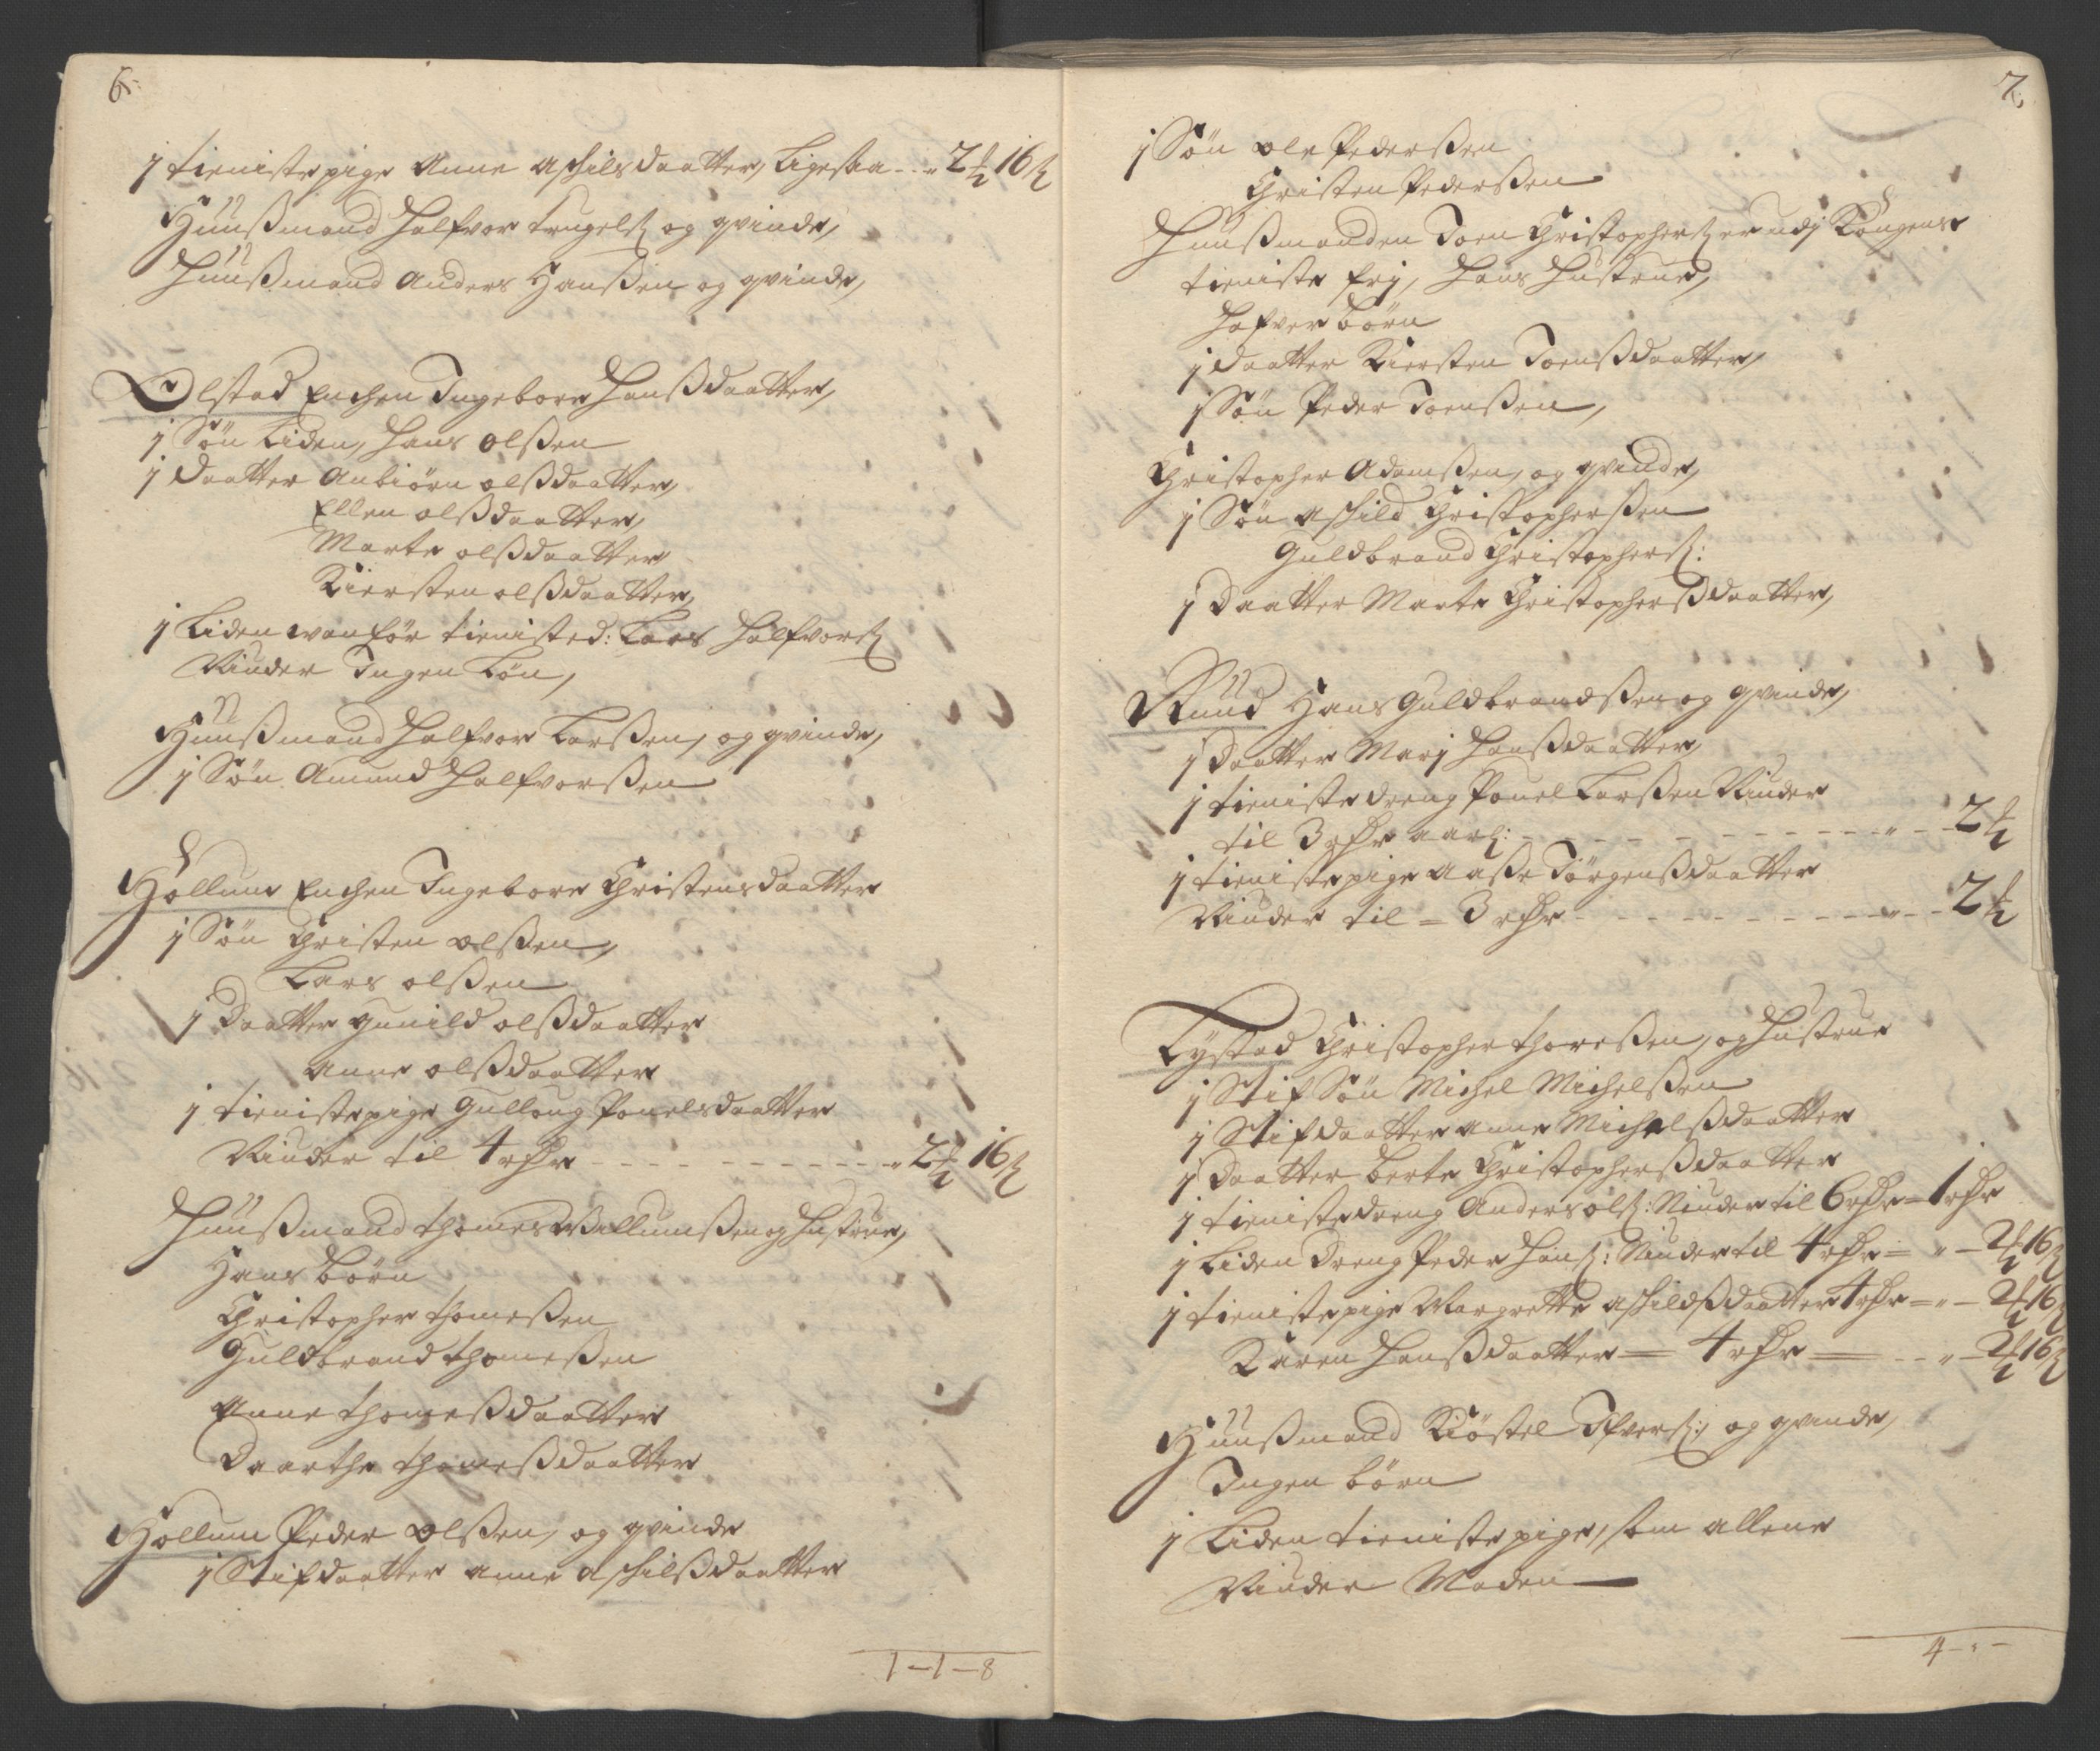 6.
1 tieniste pige Anne Aschilsdaatter, Ligesaa - - " 2 ½ 16 ß
Huußmand Halfvor Trugels: og qvinde,
Huußmand Anders Hanßen og qvinde,
Olstad Enchen Ingebor Hanßdaatter,
1 Søn Liden, Hans Olßen
1 Daatter Anbiørn olßdaatter,
Ellen olßdaatter,
Marte olßdaatter
Kiersten olßdaatter,
1 Liden wanför tienisted: Lars Halfvors:
Niuder Ingen Løn,
Huußmand Halfvor Larßen, og qvinde,
1 Søn Amund Halfvorßen
Hollum Enchen Ingebor Christensdaatter
1 Søn Christen olßen,
Lars olßen
1 Daatter gunild olßdaatter
Anne olßdaatter
1 tienistepige Gulloug Pouelsdaatter
Niuder til 4 rdr - - - - " 2 ½ 16 ß
Huußmand Thomes Willumßen og Hustrue,
Hans børn
Christopher Thomeßen
Guldbrand Thomeßen
Anne Thomeßdaatter
Daarthe Thomeßdaatter
Hollum Peder olßen, og qvinde
1 Stifdaatter Anne Aschilßdaatter
1 - 1 - 8
7.
1 Søn ole Pederßen
Christen Pederßen
Huußmanden Joen Christophers: er udj Kongens
tieniste frj, Hans Hustrue,
Hafver børn
1 Daatter Kiersten Joenßdaatter,
1 Søn Peder Joenßen,
Christopher Adamßen, og qvinde,
1 Søn Aschild Christopherßen
Guldbrand Christophers:
1 Daatter Marte Christopherßdaatter,
Ruud Hans Guldbrandßen og qvinde,
1 Daatter Marj Hanßdaatter,
1 tieniste dreng Pouel Larßen Niuder
til 3 rdr aarl: - - - - " - 2 ½
1 tienistepige Aaße Jörgenßdaatter
Niuder til = 3 rdr - - - - " - 2 ½
Lystad Christopher Thoreßen, og Hustrue
1 Stif Søn Michel Michelßen
1 Stifdaatter Anne Michelßdaatter
1 Daatter Berte Christopherßdaatter
1 tieniste dreng Anders ols: Niuder til 6 rdr = 1 rdr
1 Liden Dreng Peder Hans: Niuder til 4 rdr = " - 2 ½ 16 ß
1 tienistepige Margrette Aschildßdaatter 4 rdr = " - 2 ½ 16 ß
Karen Hanßdaatter = 4 rdr = - - " - 2 ½ 16 ß
Huußmand Kiöstel Ifvers: og qvinde,
Ingen børn
1 Liden tieniste pige, som allene
Niuder Maden
4 - " -